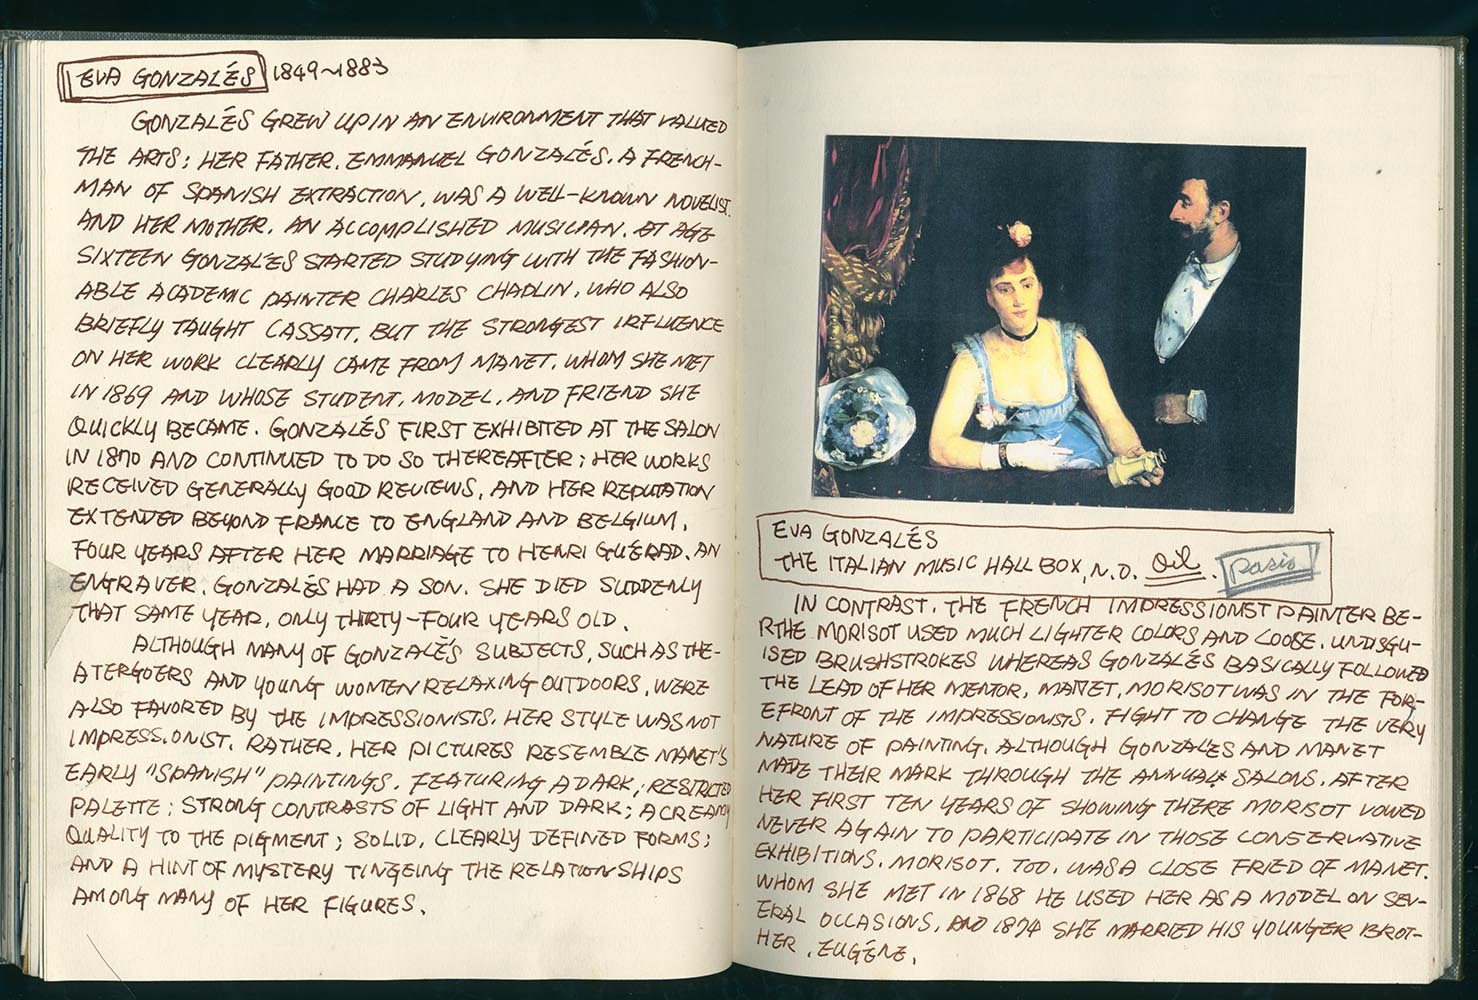 EVA GONZALÉS 1849~1883
GONZALÉS GREW UP IN AN ENVIRONMENT THAT VALUED
THE ARTS; HER FATHER. EMMANUEL GONZALÉS. A FRENCH-
MAN OF SPANISH EXTRACTION, WAS A WELL-KNOWN NOVELIST.
AND HER MOTHER. AN ACCOMPLISHED MUSICIAN. AT AGE
SIXTEEN GONZALÉS STARTED STUDYING WITH THE FASHION-
ABLE ACADEMIC PAINTER CHARLES CHAPLIN, WHO ALSO
BRIEFLY TAUGHT CASSATT. BUT THE STRONGEST INFLUENCE
ON HER WORK CLEARLY CAME FROM MANET. WHOM SHE MET
IN 1869 AND WHOSE STUDENT, MODEL, AND FRIEND SHE
QUICKLY BECAME. GONZALÉS FIRST EXHIBITED AT THE SALON
IN 1870 AND CONTINUED TO DO SO THEREAFTER; HER WORKS
RECEIVED GENERALLY GOOD REVIEWS, AND HER REPUTATION
EXTENDED BEYOND FRANCE TO ENGLAND AND BELGIUM.
FOUR YEARS AFTER HER MARRIAGE TO HENRI GUÉRAD. AN
ENGRAVER. GONZALÉS HAD A SON. SHE DIED SUDDENLY
THAT SAME YEAR, ONLY THIRTY-FOUR YEARS OLD.
ALTHOUGH MANY OF GONZALÉS SUBJECTS, SUCH AS THE-
ATERGOERS AND YOUNG WOMEN RELAXING OUTDOORS, WERE
ALSO FAVORED BY THE IMPRESSIONISTS. HER STYLE WAS NOT
IMPRESSIONIST. RATHER, HER PICTURES RESEMBLE MANET'S
EARLY "SPANISH" PAINTINGS. FEATURING A DARK, RESTRICTED
PALETTE; STRONG CONTRASTS OF LIGHT AND DARK; A CREAMY
QUALITY TO THE PIGMENT; SOLID, CLEARLY DEFINED FORMS;
AND A HINT OF MYSTERY TINGEING THE RELATIONSHIPS
AMONG MANY OF HER FIGURES.
EVA GONZALÉS
THE ITALIAN MUSIC HALL BOX, N.D. Oil. Paris
IN CONTRAST. THE FRENCH IMPRESSIONIST PAINTER BE-
RTHE MORISOT USED MUCH LIGHTER COLORS AND LOOSE. UNDISGU-
ISED BRUSHSTROKES WHEREAS GONZALÉS BASICALLY FOLLOWED
THE LEAD OF HER MENTOR, MANET, MORISOT WAS IN THE FOR-
EFRONT OF THE IMPRESSIONISTS. FIGHT TO CHANGE THE VERY
NATURE OF PAINTING. ALTHOUGH GONZALÉS AND MANET
MADE THEIR MARK THROUGH THE ANNUAL SALONS. AFTER
HER FIRST TEN YEARS OF SHOWING THERE MORISOT VOWED
NEVER AGAIN TO PARTICIPATE IN THOSE CONSERVATIVE
EXHIBITIONS. MORISOT. TOO. WAS A CLOSE FRIED OF MANET.
WHOM SHE MET IN 1868 HE USED HER AS A MODEL ON SEV-
ERAL OCCASIONS, AND 1874 SHE MARRIED HIS YOUNGER BROT-
HER. EUGÉNE.